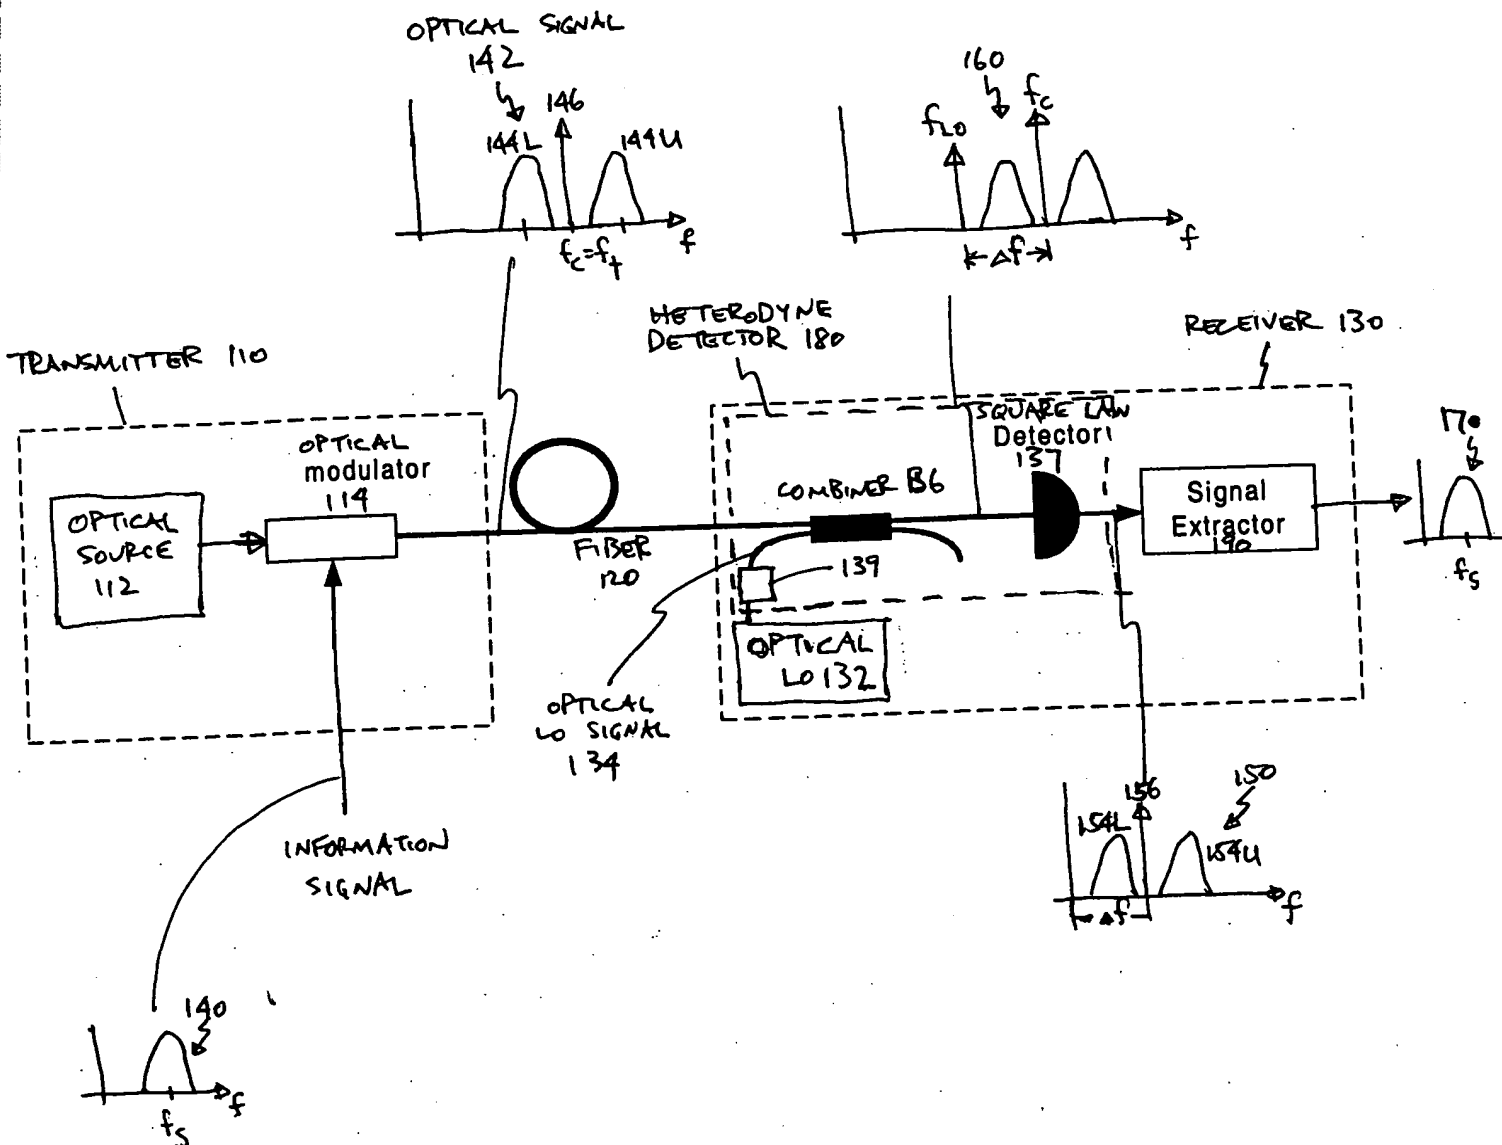 OPTICAL SIGNAL
142
146
144L
144U
fc=ft
f
160
fLO
fc
Δf
f
HETERODYNE
DETECTOR 180
RECEIVER 130
TRANSMITTER 110
OPTICAL
modulator
114
OPTICAL
SOURCE
112
FIBER
120
COMBINER 136
SQUARE LAW
Detector
137
Signal
Extractor
190
170
fs
139
OPTICAL
LO 132
OPTICAL
LO SIGNAL
134
INFORMATION
SIGNAL
156
150
154L
154U
Δf
f
140
f
fs